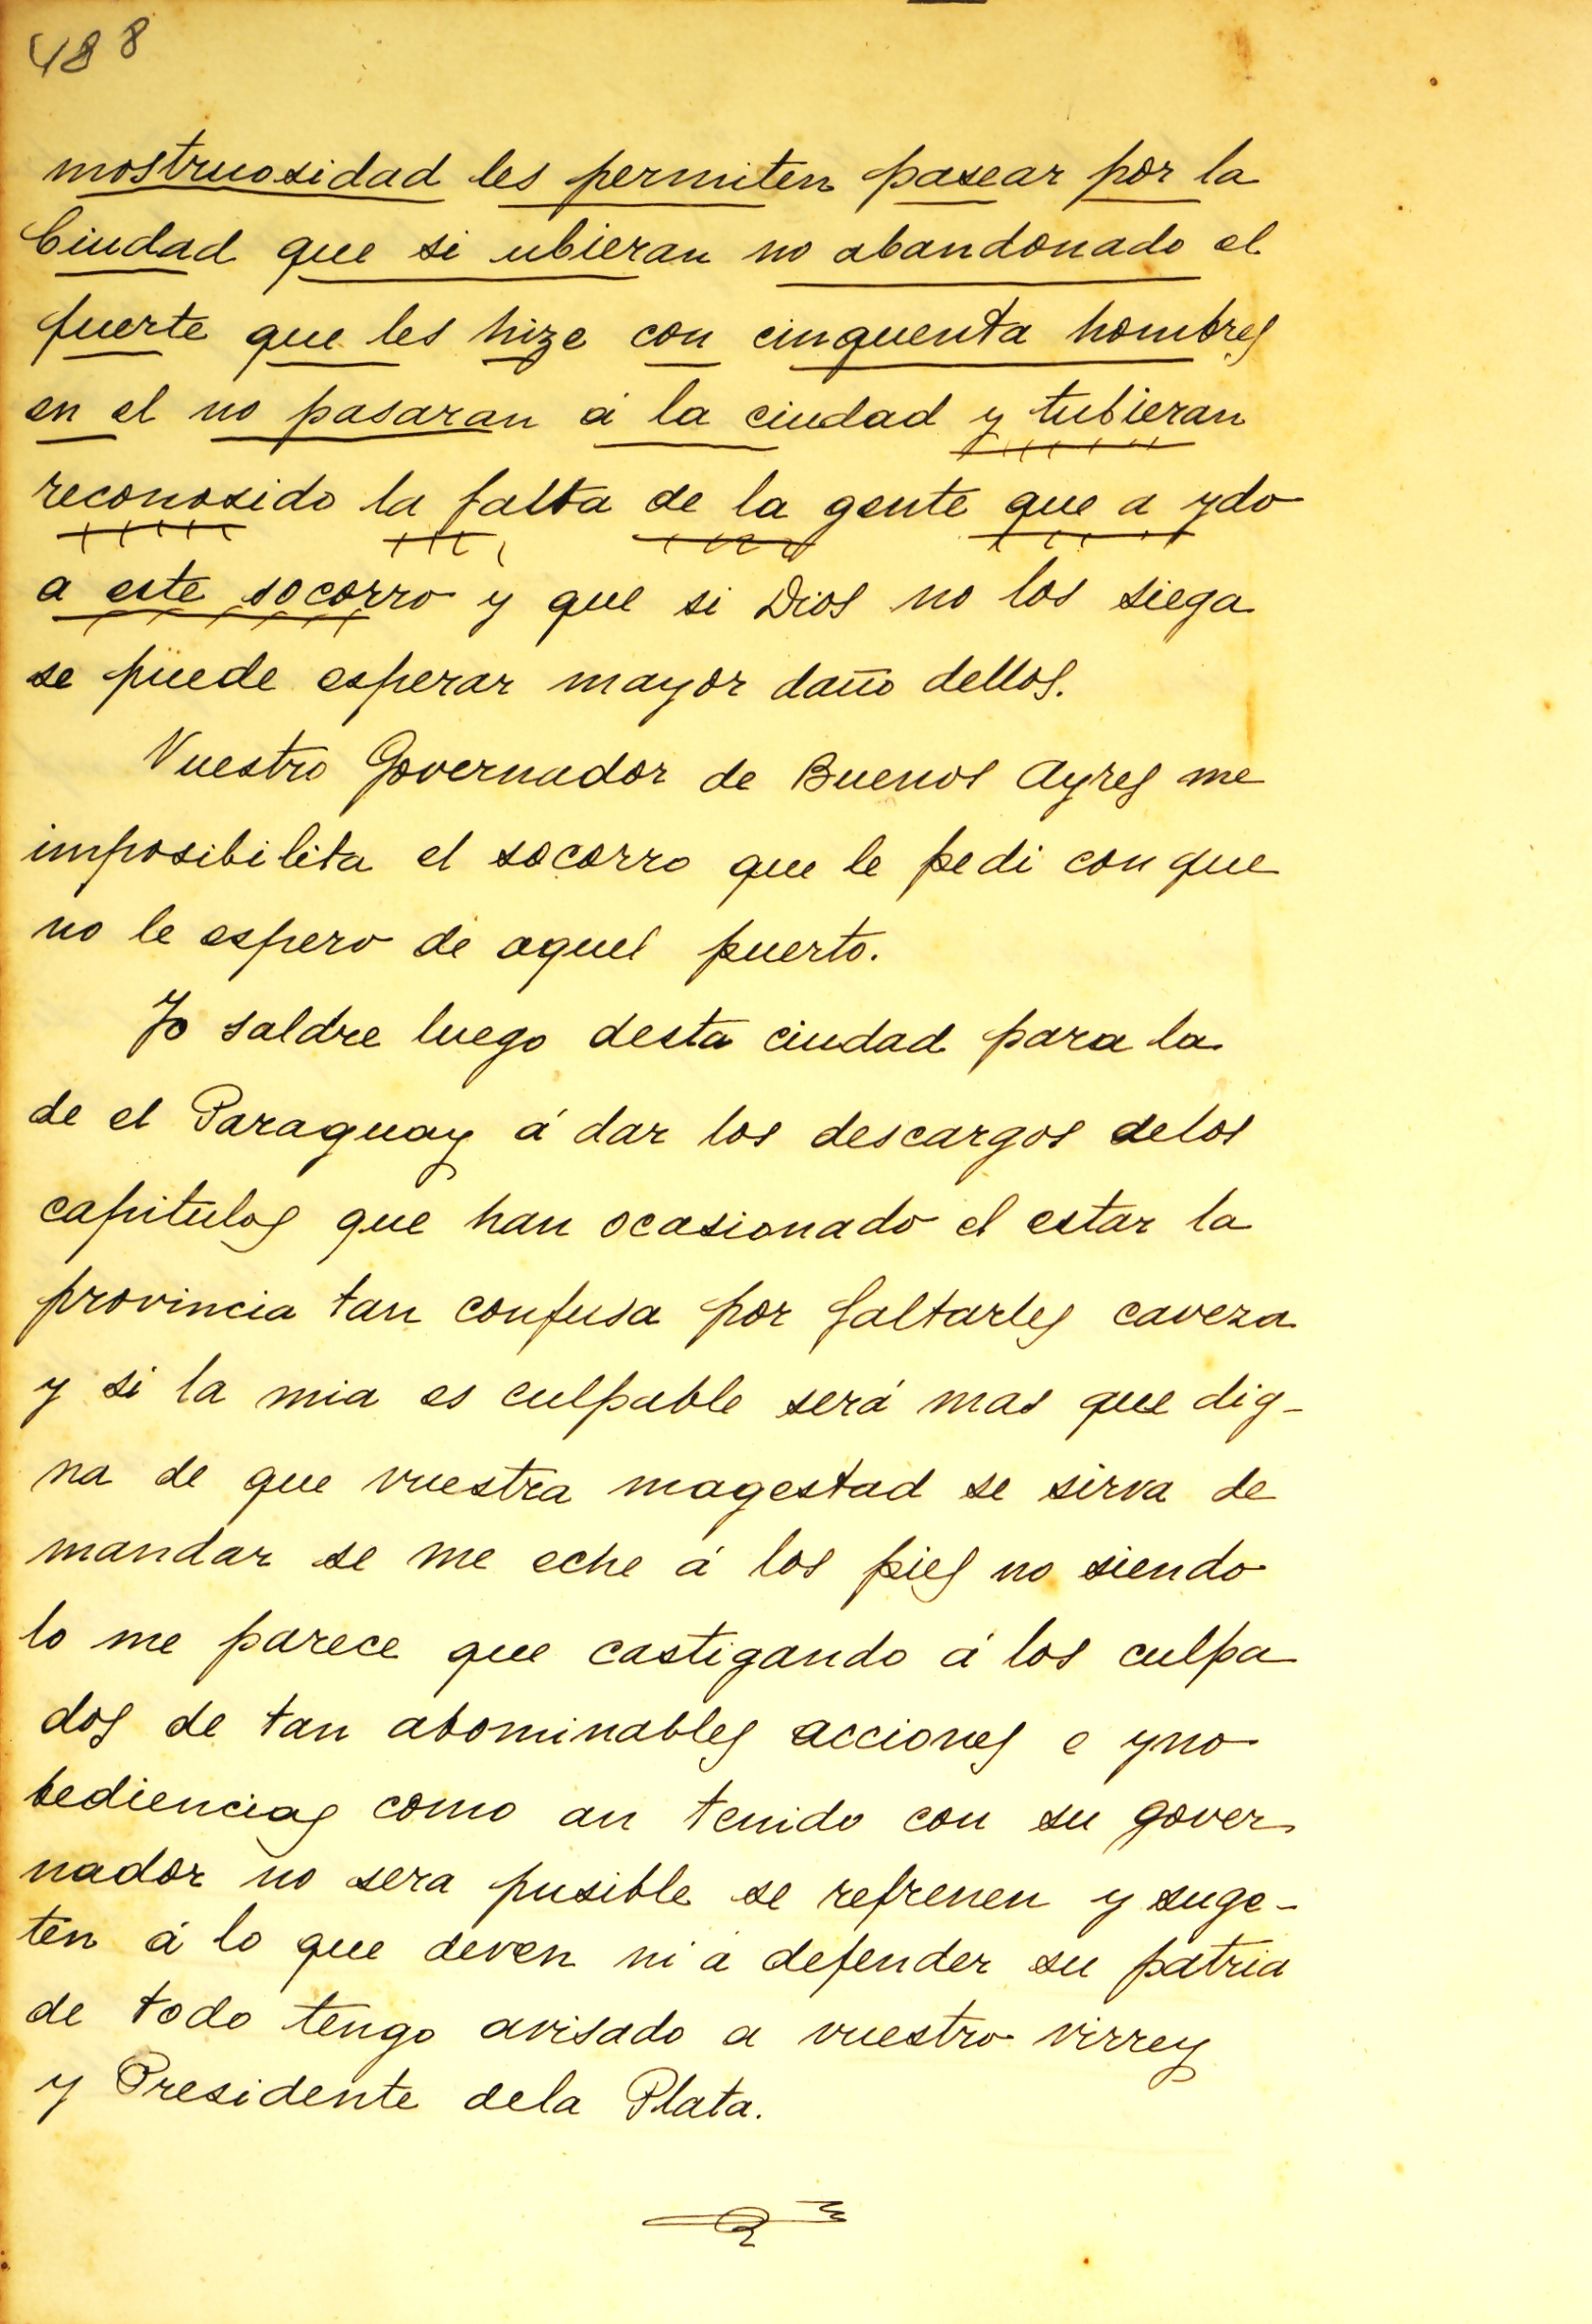 488
mostruosidad les permiten pasear por la
Ciudad que si ubieran no abandonado el
fuerte que les hize con cinquenta hombres
en el no pasaran á la ciudad y tubieran
reconosido la falta de la gente que a ydo
a este socorro y que si Dios no los siega
se puede esperar mayor daño dellos.
Vuestro Governador de Buenos Ayres me
imposibilita el socorro que le pedi con que
no le espero de aquel puerto.
Yo saldre luego desta ciudad para la
de el Paraguay á dar los descargos delos
capitulos que han ocasionado el estar la
provincia tan confusa por faltarles caveza
y si la mia es culpable será mas que dig-
na de que vuestra magestad se sirva de
mandar se me eche á los pies no siendo
lo me parece que castigando á los culpa
dos de tan abominables acciones e yno
bediencias como an tenido con su gover
nador no sera pusible se refrenen y suge-
ten á lo que deven ni a defender su patria
de todo tengo avisado a vuestro virrey
y Presidente dela Plata.